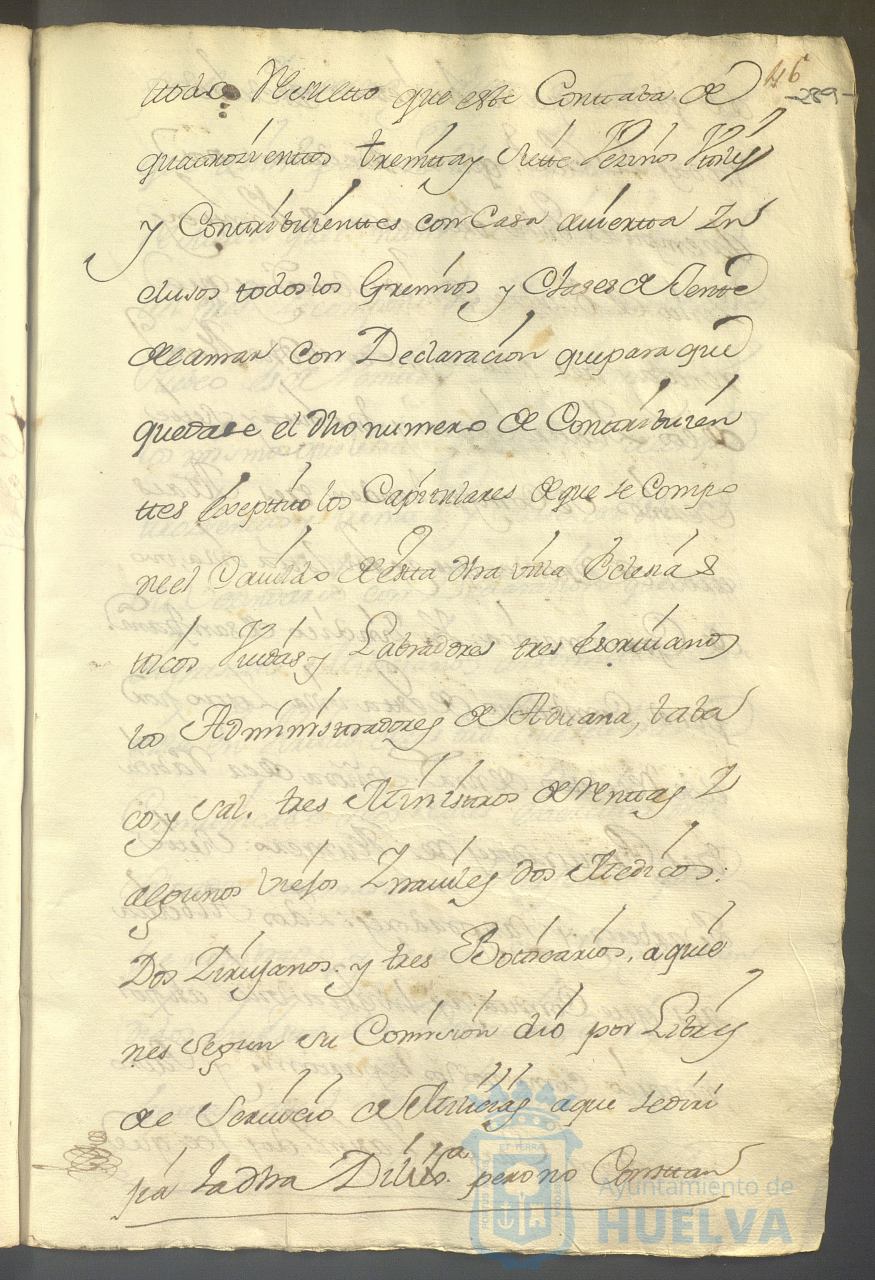 46
-289-
ttodo Resultto que este Conttaba de
quattrozienttos treintta y siette Vezinos Vttiles
y Conttribuienttes con Casa auiertta In
clusos todos los Gremios y Clases de Gentte
de la mar con Declarazion que para que
quedase el dho numero de Conttribuien
ttes exepttuo los Capitulares de que se Compo
ne el Cauildo de estta dha villa Eclesias
ticos Viudas y Labradores tres Escriuanos
los Administtradores de Aduana, taba
co y sal. tres Ministros de Renttas I
algunos viejos Inuttiles dos Medicos:
Dos Zirujanos. y tres Boticarios, a quie
nes segun su Comision dio por Libres
de Seruicio de Milicias a que se diri
jia la dha Diliga. pero no Consttan
Ayuntamiento de
HUELVA